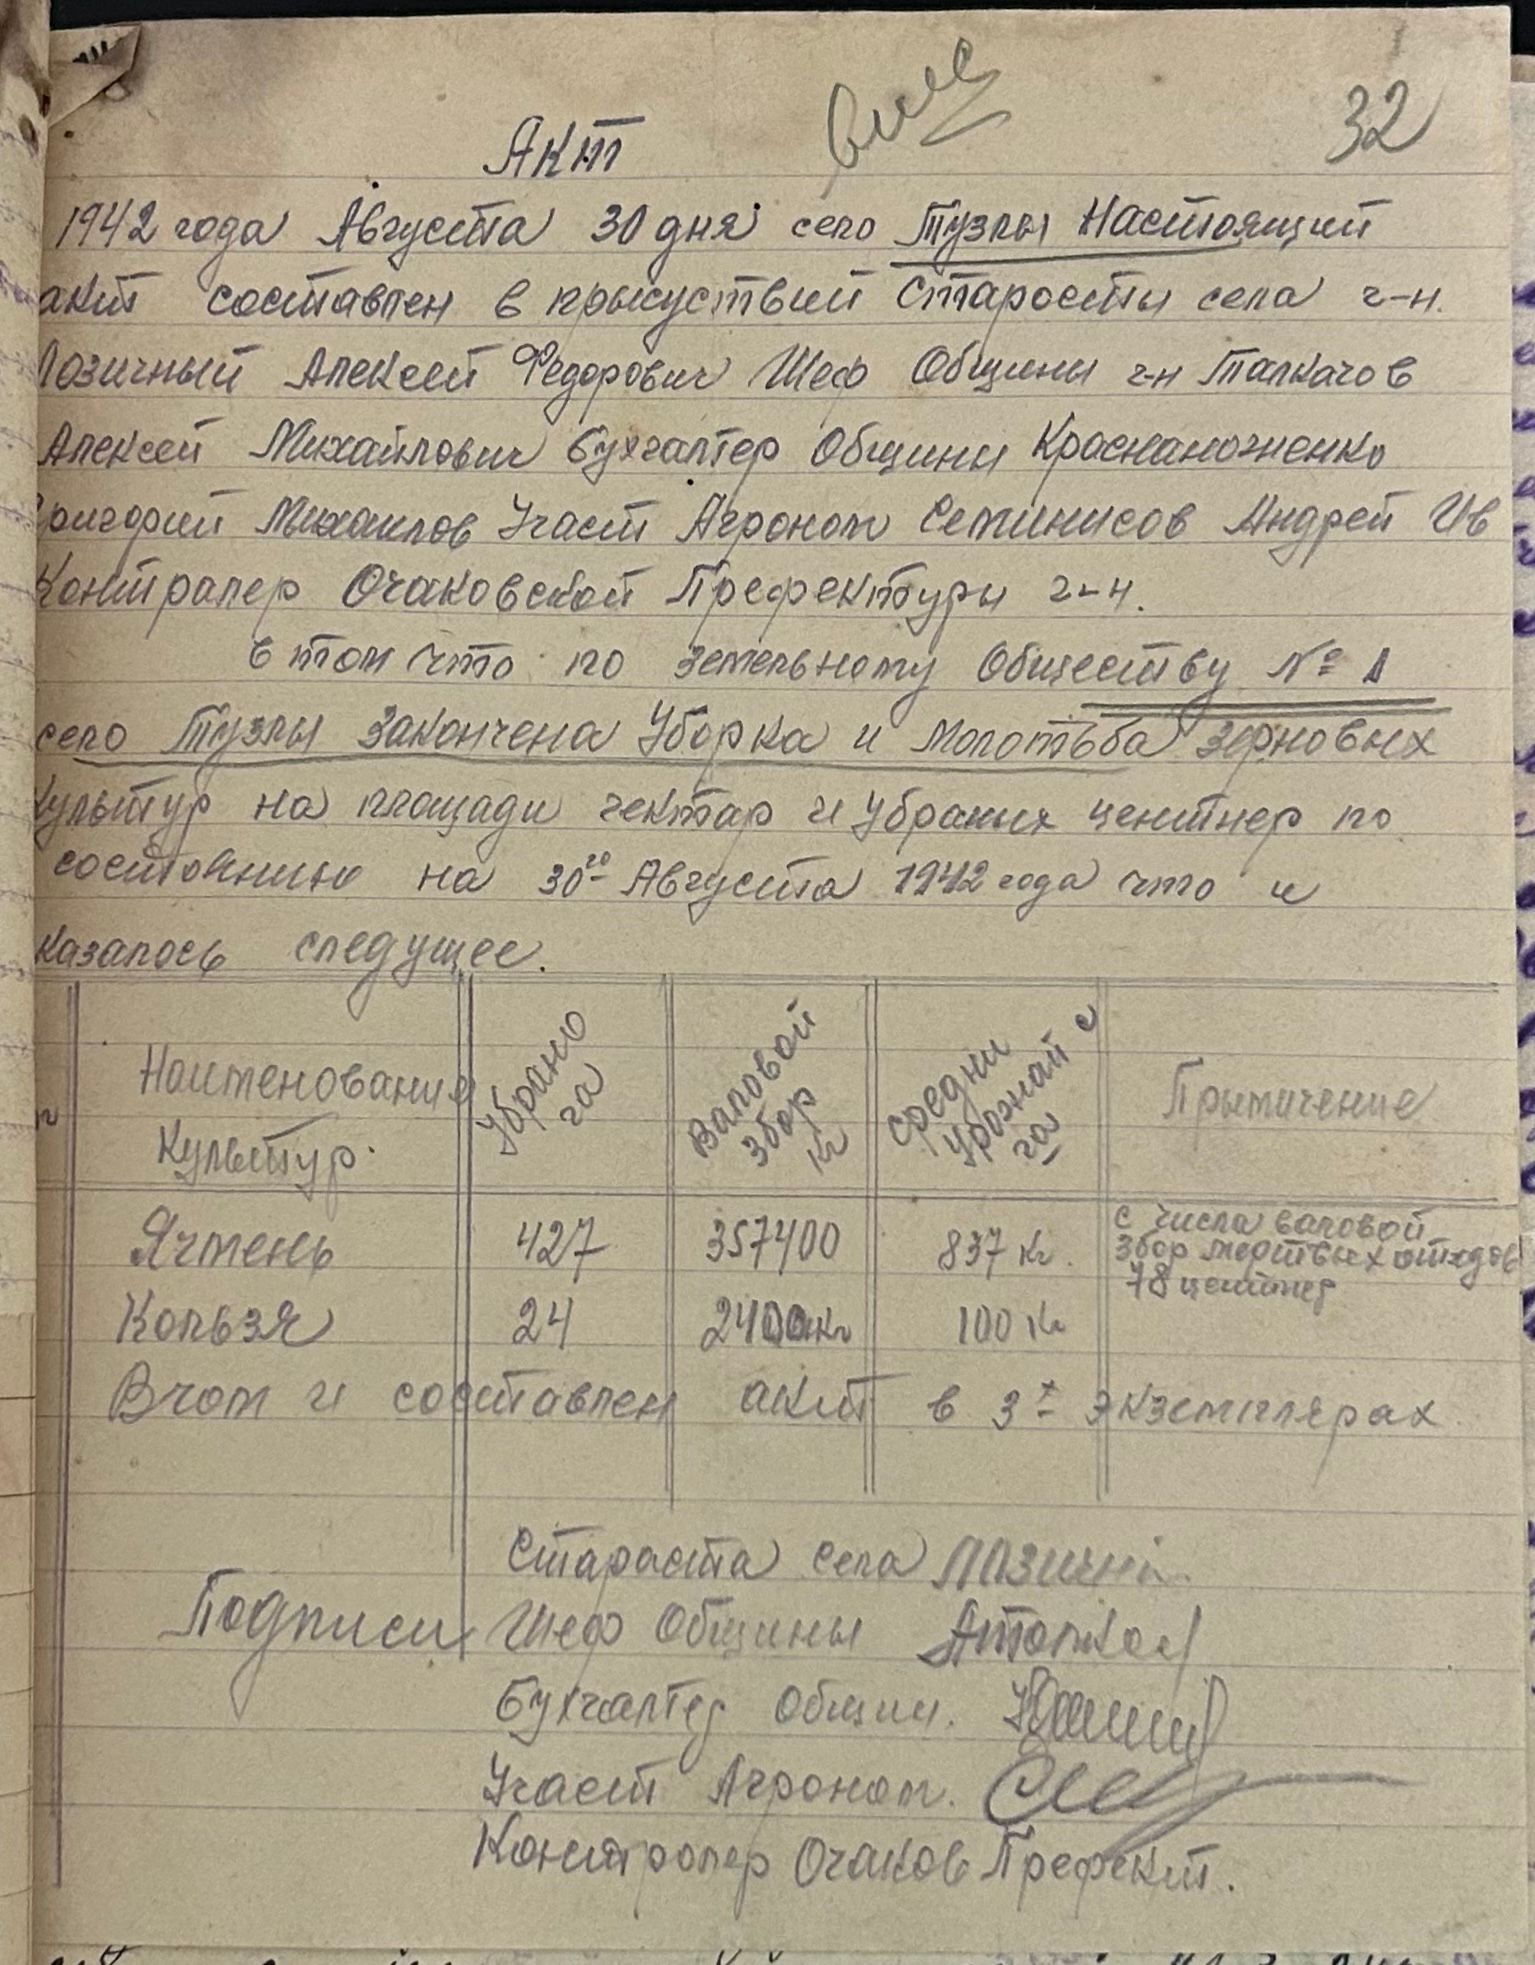 32
Акт
1942 года Августа 30 дня село Тузлы Настоящий
акт составлен в прысуствии Старосты села г-н.
Лозичный Алексей Федорович Шеф Общины г-н Талкачов
Алексей Михайлович бухгалтер Общины Краснаноженко
Григорий Михайлов Участ Агроном Семинисов Андрей Ив
Контралер Очаковской Префектуры г-н.
в том что по земельному Обществу № 1
село Тузлы Закончена Уборка и молотьба зерновых
культур на площади гектар и убраных центнер по
состоянию на 30го Августа 1942 года что и
казалось следущее.
Наименования Культур.
Убрано га
Валовой Збор кг
Средни урожай с га
Прымичение
Ячмень 427 357400 837 кг.
с числа валовой
збор мертвых отходов
78 центнер
Кользя 24 2400кг 100 кг
Вчом и составлен акт в 3х экземплярах
Подписи
Стараста села Лозичн
Шеф Общины АТолкач
Бухгалтер Общин.
Участ Агроном.
Контролер Очаков Префект.